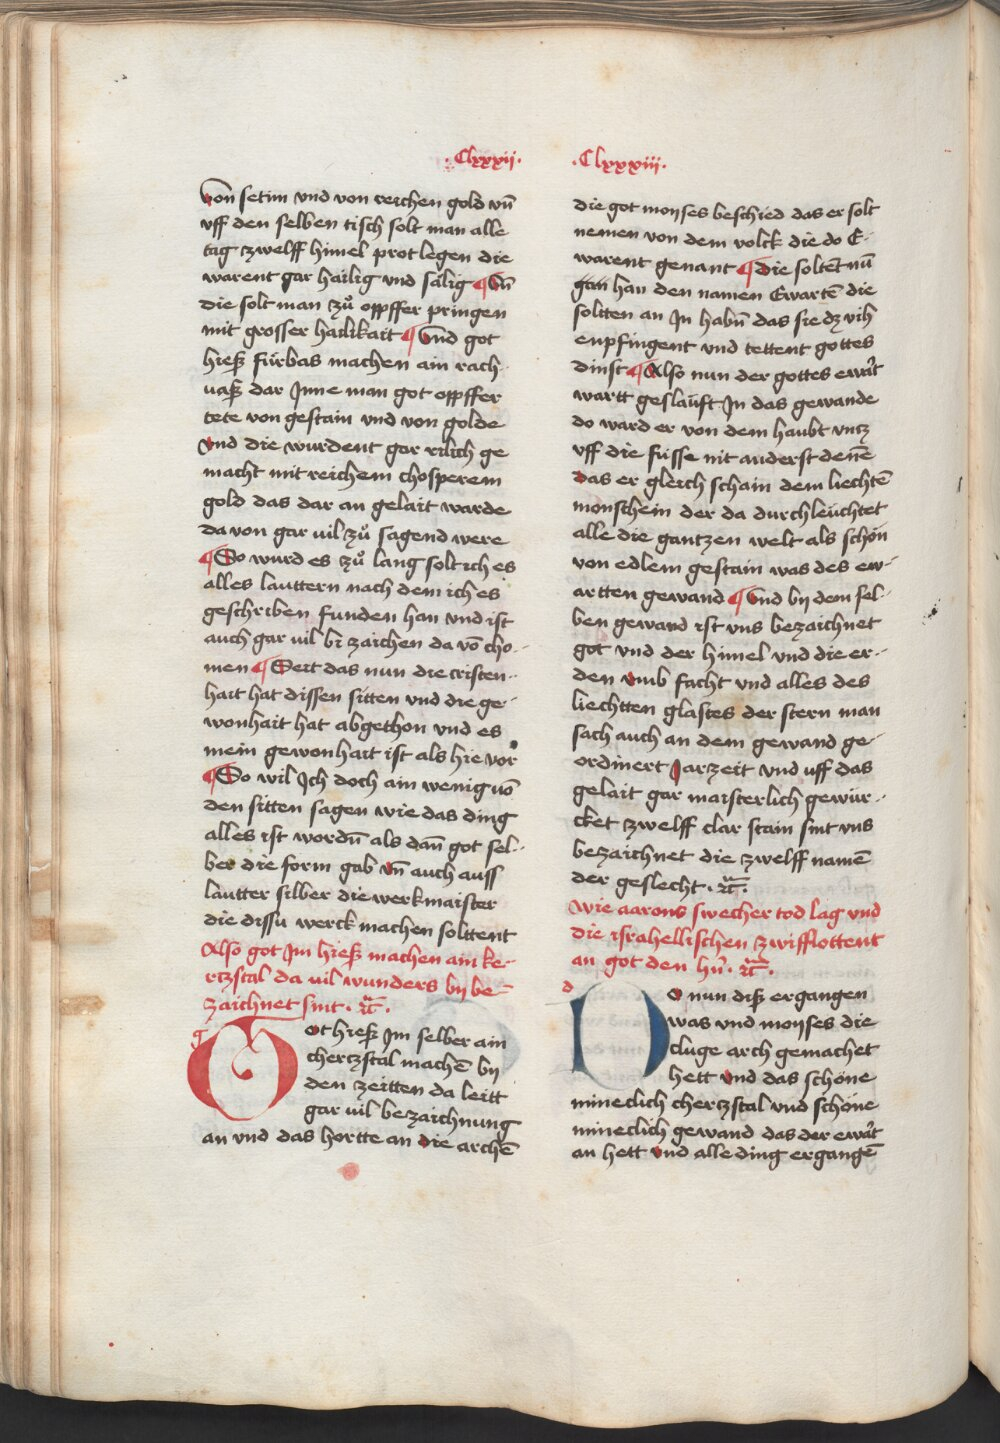 .Clxxxii.
von setim vnd von reichen gold vn̄
vff den selben tisch solt man alle
tag zwelff himel prot legen die
warent gar hailig vnd sälig ¶ Vn̄
die solt man zů opffer pringen
mit grosser hailikait ¶ Vnd got
hieß fürbas machen ain rach
uaß dar Jnne man got opffer
tete von gestain vnd von golde
Vnd die wurdent gar rilich ge
macht mit reichem chosperem
gold das dar an gelait warde
da von gar uil zů sagend were
¶ So wurd es zů lang solt ich es
alles lauttern nach dem ich es
geschriben funden han vnd ist
auch gar uil bi zaichen da vō cho-
men ¶ Seit das nun die cristen-
hait hat dissen sitten vnd die ge-
wonhait hat abgethon vnd es
mein gewonhait ist als hie vor
¶ So wil Jch doch ain wenig uō
den sitten sagen wie das ding
alles ist wordn̄ als dan̄ got sel-
ber die form gab Vn̄ auch auss
lautter silber die werkmaister
die dissu werck machen solttent
Also got Jm hieß machen ain ke-
rczstal da uil wunders by be-
zaichnet sint . rc̄ .
g
Got hieß Jm selber ain
cherczstal machē by
den zeitten da leitt
gar uil bezaichnung
an vnd das hortte an die archē
.Clxxxiii.
die got moyses beschied das er solt
nemen von dem volck die do E-
warent genant ¶ die soltēt nū
gan han den namen Ewartē die
soltten an Jn habn̄ das sie dz vih
enpfingent vnd tettent gottes
dinst ¶ Also nun der gottes ewar̄t
wartt geslaüft Jn das gewande
do ward er von dem haubt vncz
vff die füsse nit anderst denē
das er gleich schain dem liechtē
monschein der da durchleüchtet
alle die gantzen welt als schön
von edlem gestain was des ew-
artten gewand ¶ Vnd by dem sel-
ben gewand ist vns bezaichnet
got vnd der himel vnd die er-
den vmb facht vnd alles des
liechtten glastes der stern man
sach auch an dem gewand ge-
ordinert Jarzeit vnd uff das
gelait gar maisterlich gewür-
cket zwelff clar stain sint vns
bezaichnet die zwelff namē
der geslecht . rc̄ .
wie aarons swecher tod lag vnd
die israhellischen zwifflottent
an got den hn̄ . rc̄ .
d
Do nun diß ergangen
was vnd moyses die
cluge arch gemachet
hett vnd das schöne
mineclich cherczstal vnd schöne
mineclich gewand das der ewar̄t
an hett vnd alle ding ergangē